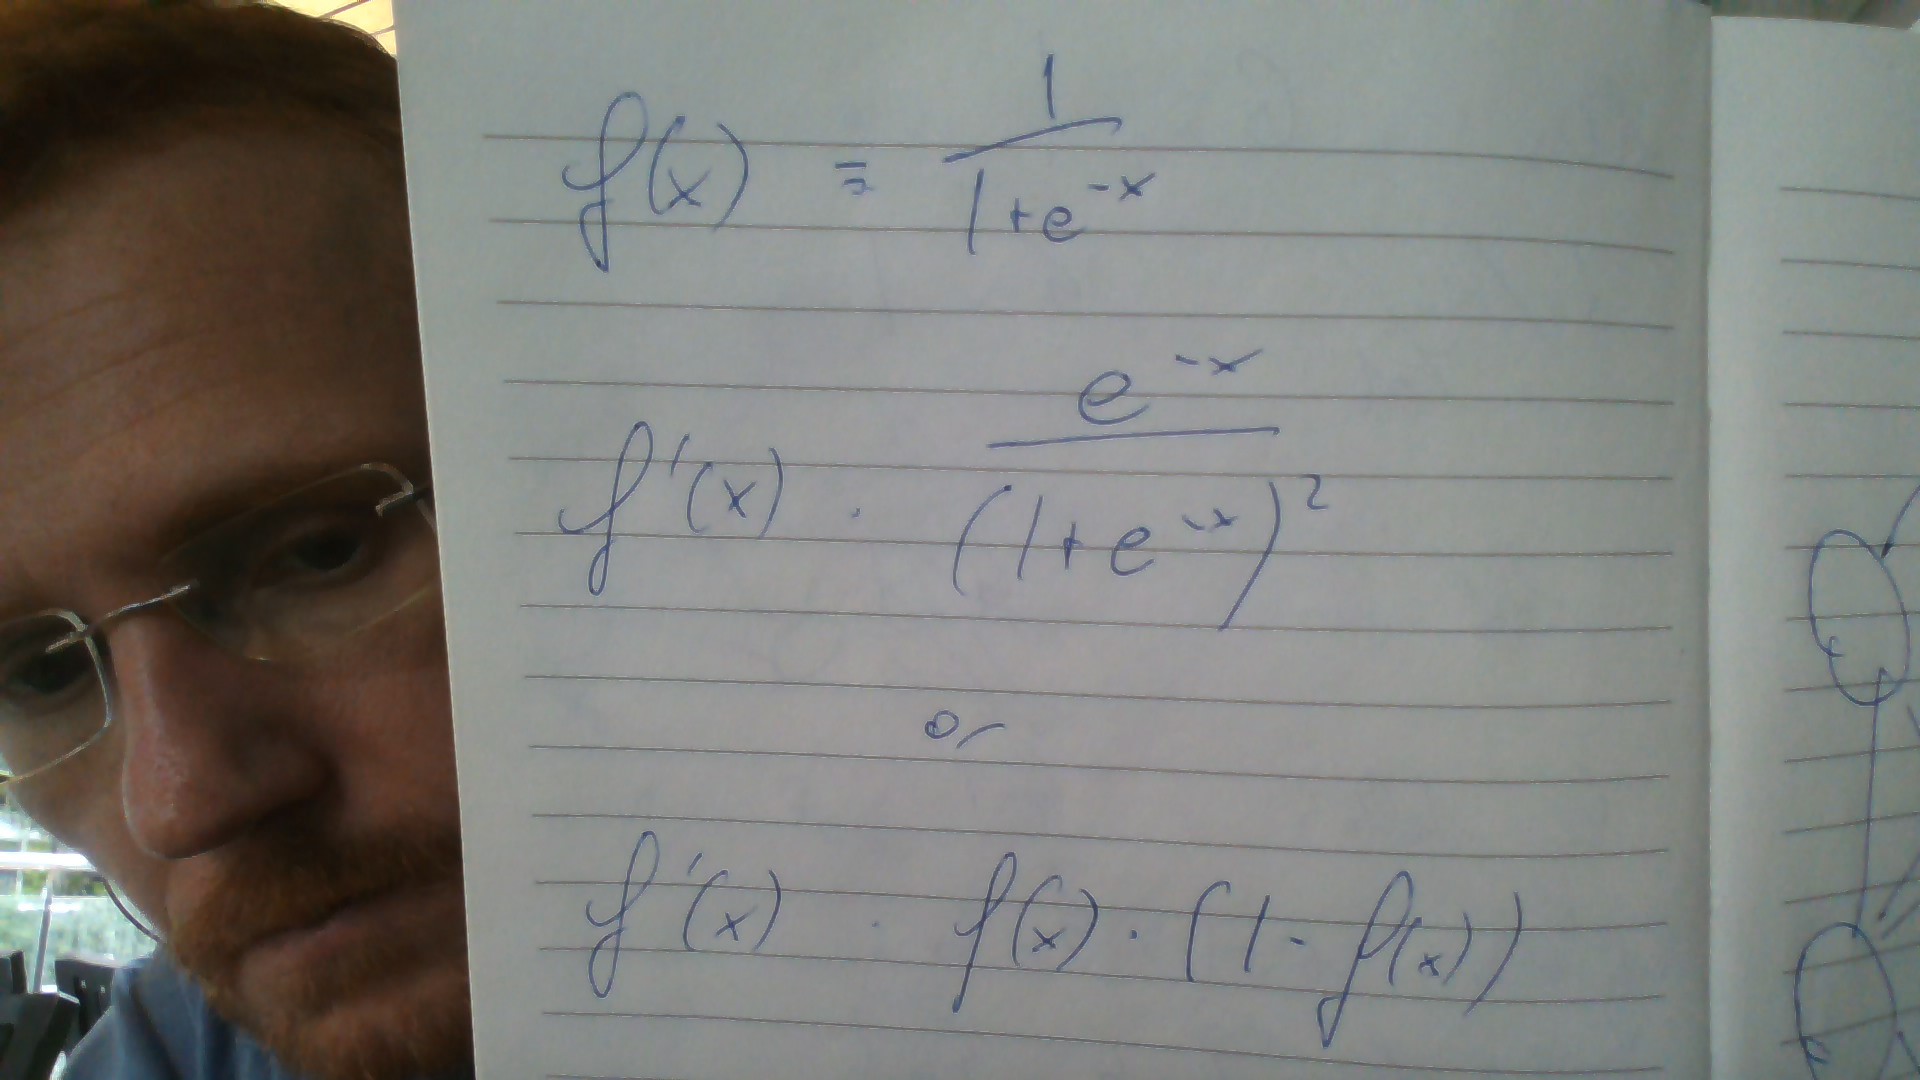 f(x) = 1 / (1+e^-x)
f'(x) . e^-x / (1+e^-x)^2
or
f'(x) . f(x) · (1 - f(x))